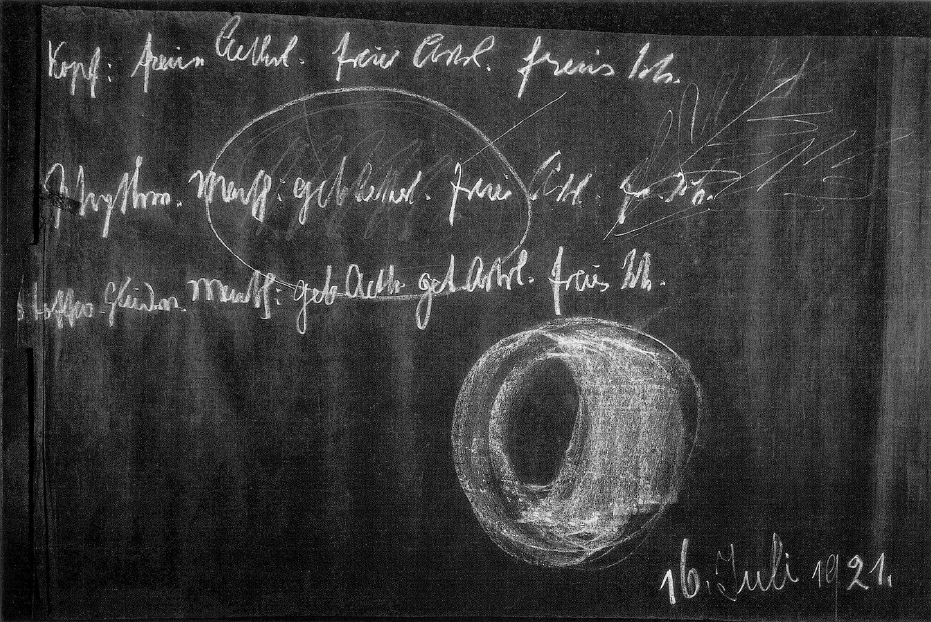 Kopf: freien Aetherl. freier Astral. freies Ich.
Rhythm. Mensch: geb. Aetherl. freier Astl. fr. Ich.
Stoffw. Gliedm. Mensch: geb Aeth. geb Astrl. freies Ich.
16. Juli 1921.